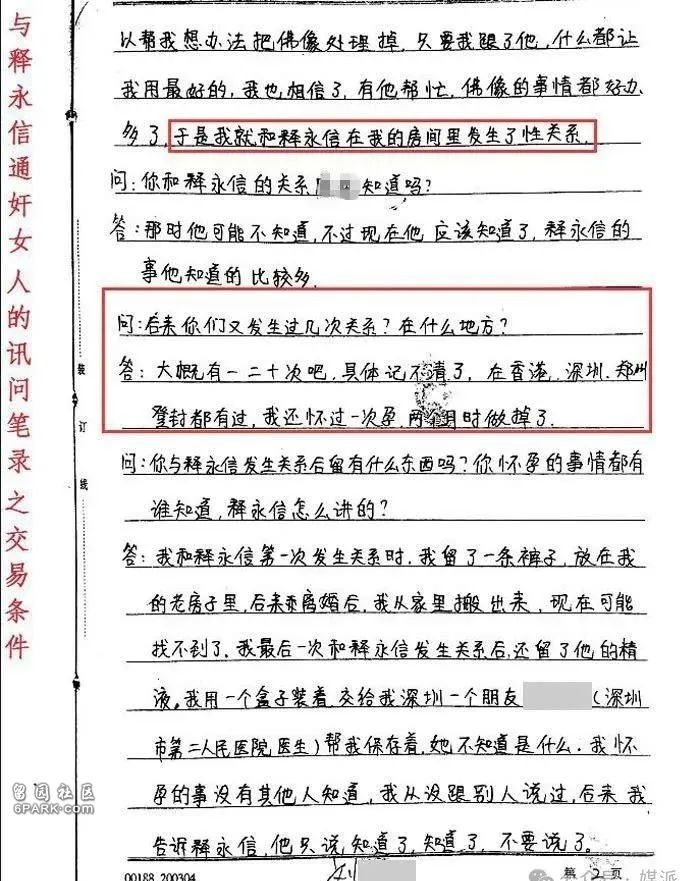 与释永信通奸女人的讯问笔录之交易条件
以帮我想办法把佛像处理掉，只要我跟了他，什么都让
我用最好的，我也相信了，有他帮忙，佛像的事情都好办
多了，于是我就和释永信在我的房间里发生了性关系。
问：你和释永信的关系 知道吗？
答：那时他可能不知道，不过现在他应该知道了，释永信的
事他知道的比较多。
问：后来你们又发生过几次关系？在什么地方？
答：大概有一二十次吧，具体记不清了，在香港、深圳、郑州
登封都有过，我还怀过一次孕，两个月时做掉了。
问：你与释永信发生关系后留有什么东西吗？你怀孕的事情都有
谁知道，释永信怎么讲的？
答：我和释永信第一次发生关系时，我留了一条裤子，放在我
的老房子里，后来 离婚后，我从家里搬出来，现在可能
找不到了，我最后一次和释永信发生关系后，还留了他的精
液，我用一个盒子装着交给我深圳一个朋友 （深圳
市第二人民医院医生）帮我保存着，她不知道是什么。我怀
孕的事没有其他人知道，我从没跟别人说过，后来我
告诉释永信，他只说知道了，知道了，不要说了。
装
订
线
留园社区
6PARK.com
00188 200304
刘
第 2 页
公众号·媒派